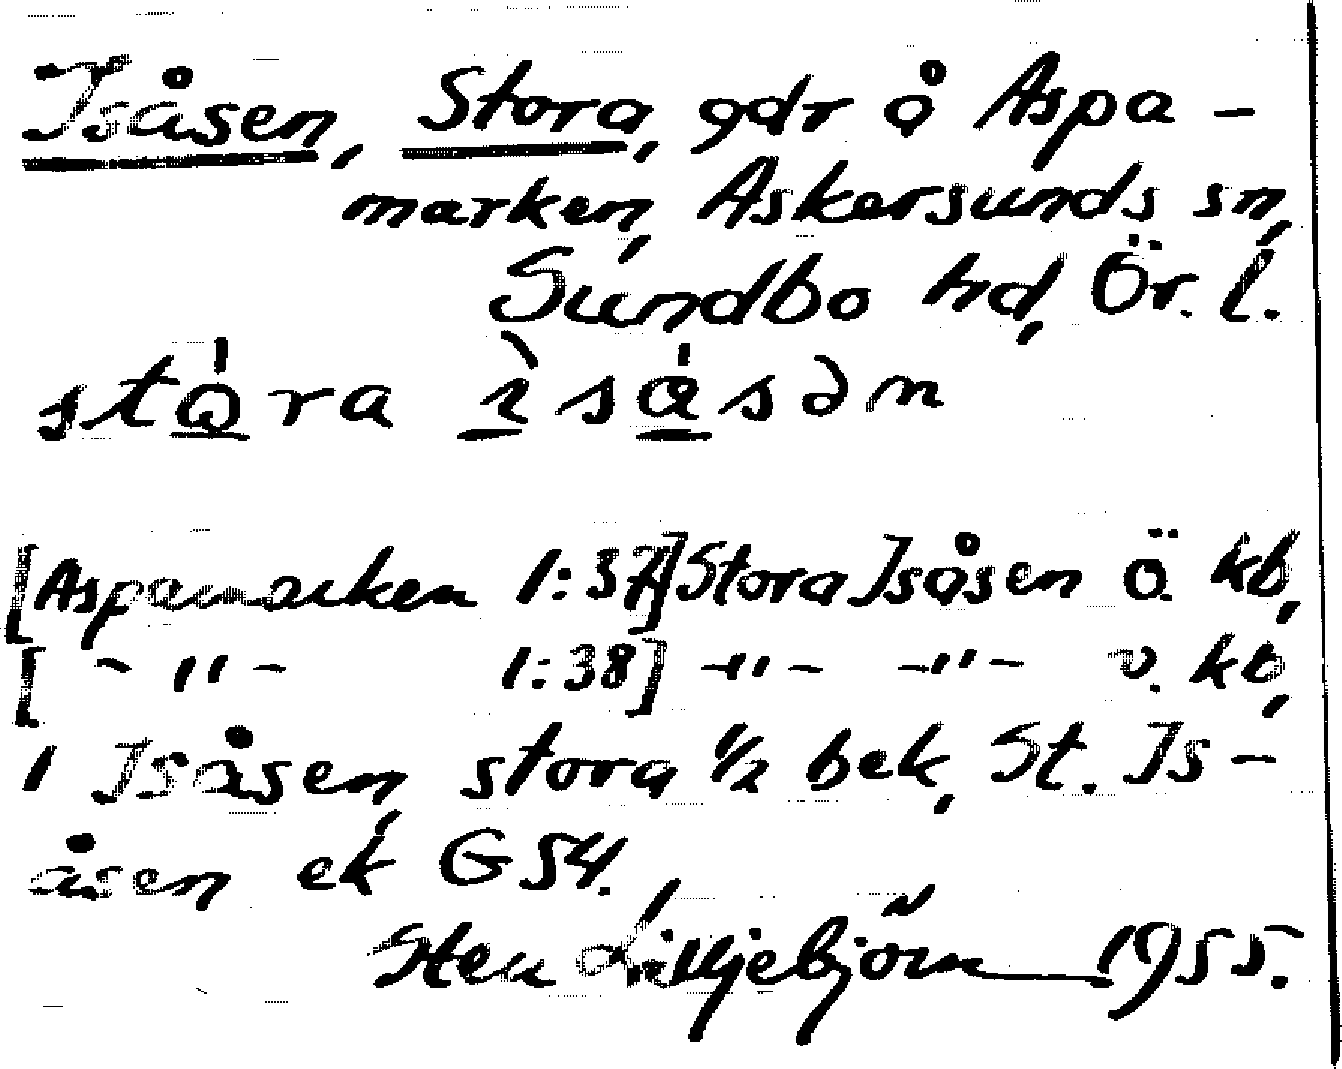 Isåsen, Stora, gdr å Aspa-
marken, Askersunds sn,
Sundbo hd, Ör. l.
stó̱ra ì̱sǻ̱sən
[Aspamarken 1:37] Stora Isåsen ö. kb,
[ -"- 1:38] -"- -"- v. kb,
1 Isåsen, stora ½ bek, St. Is-
åsen ek G 54.
Sten Lilljebjörn 1955.